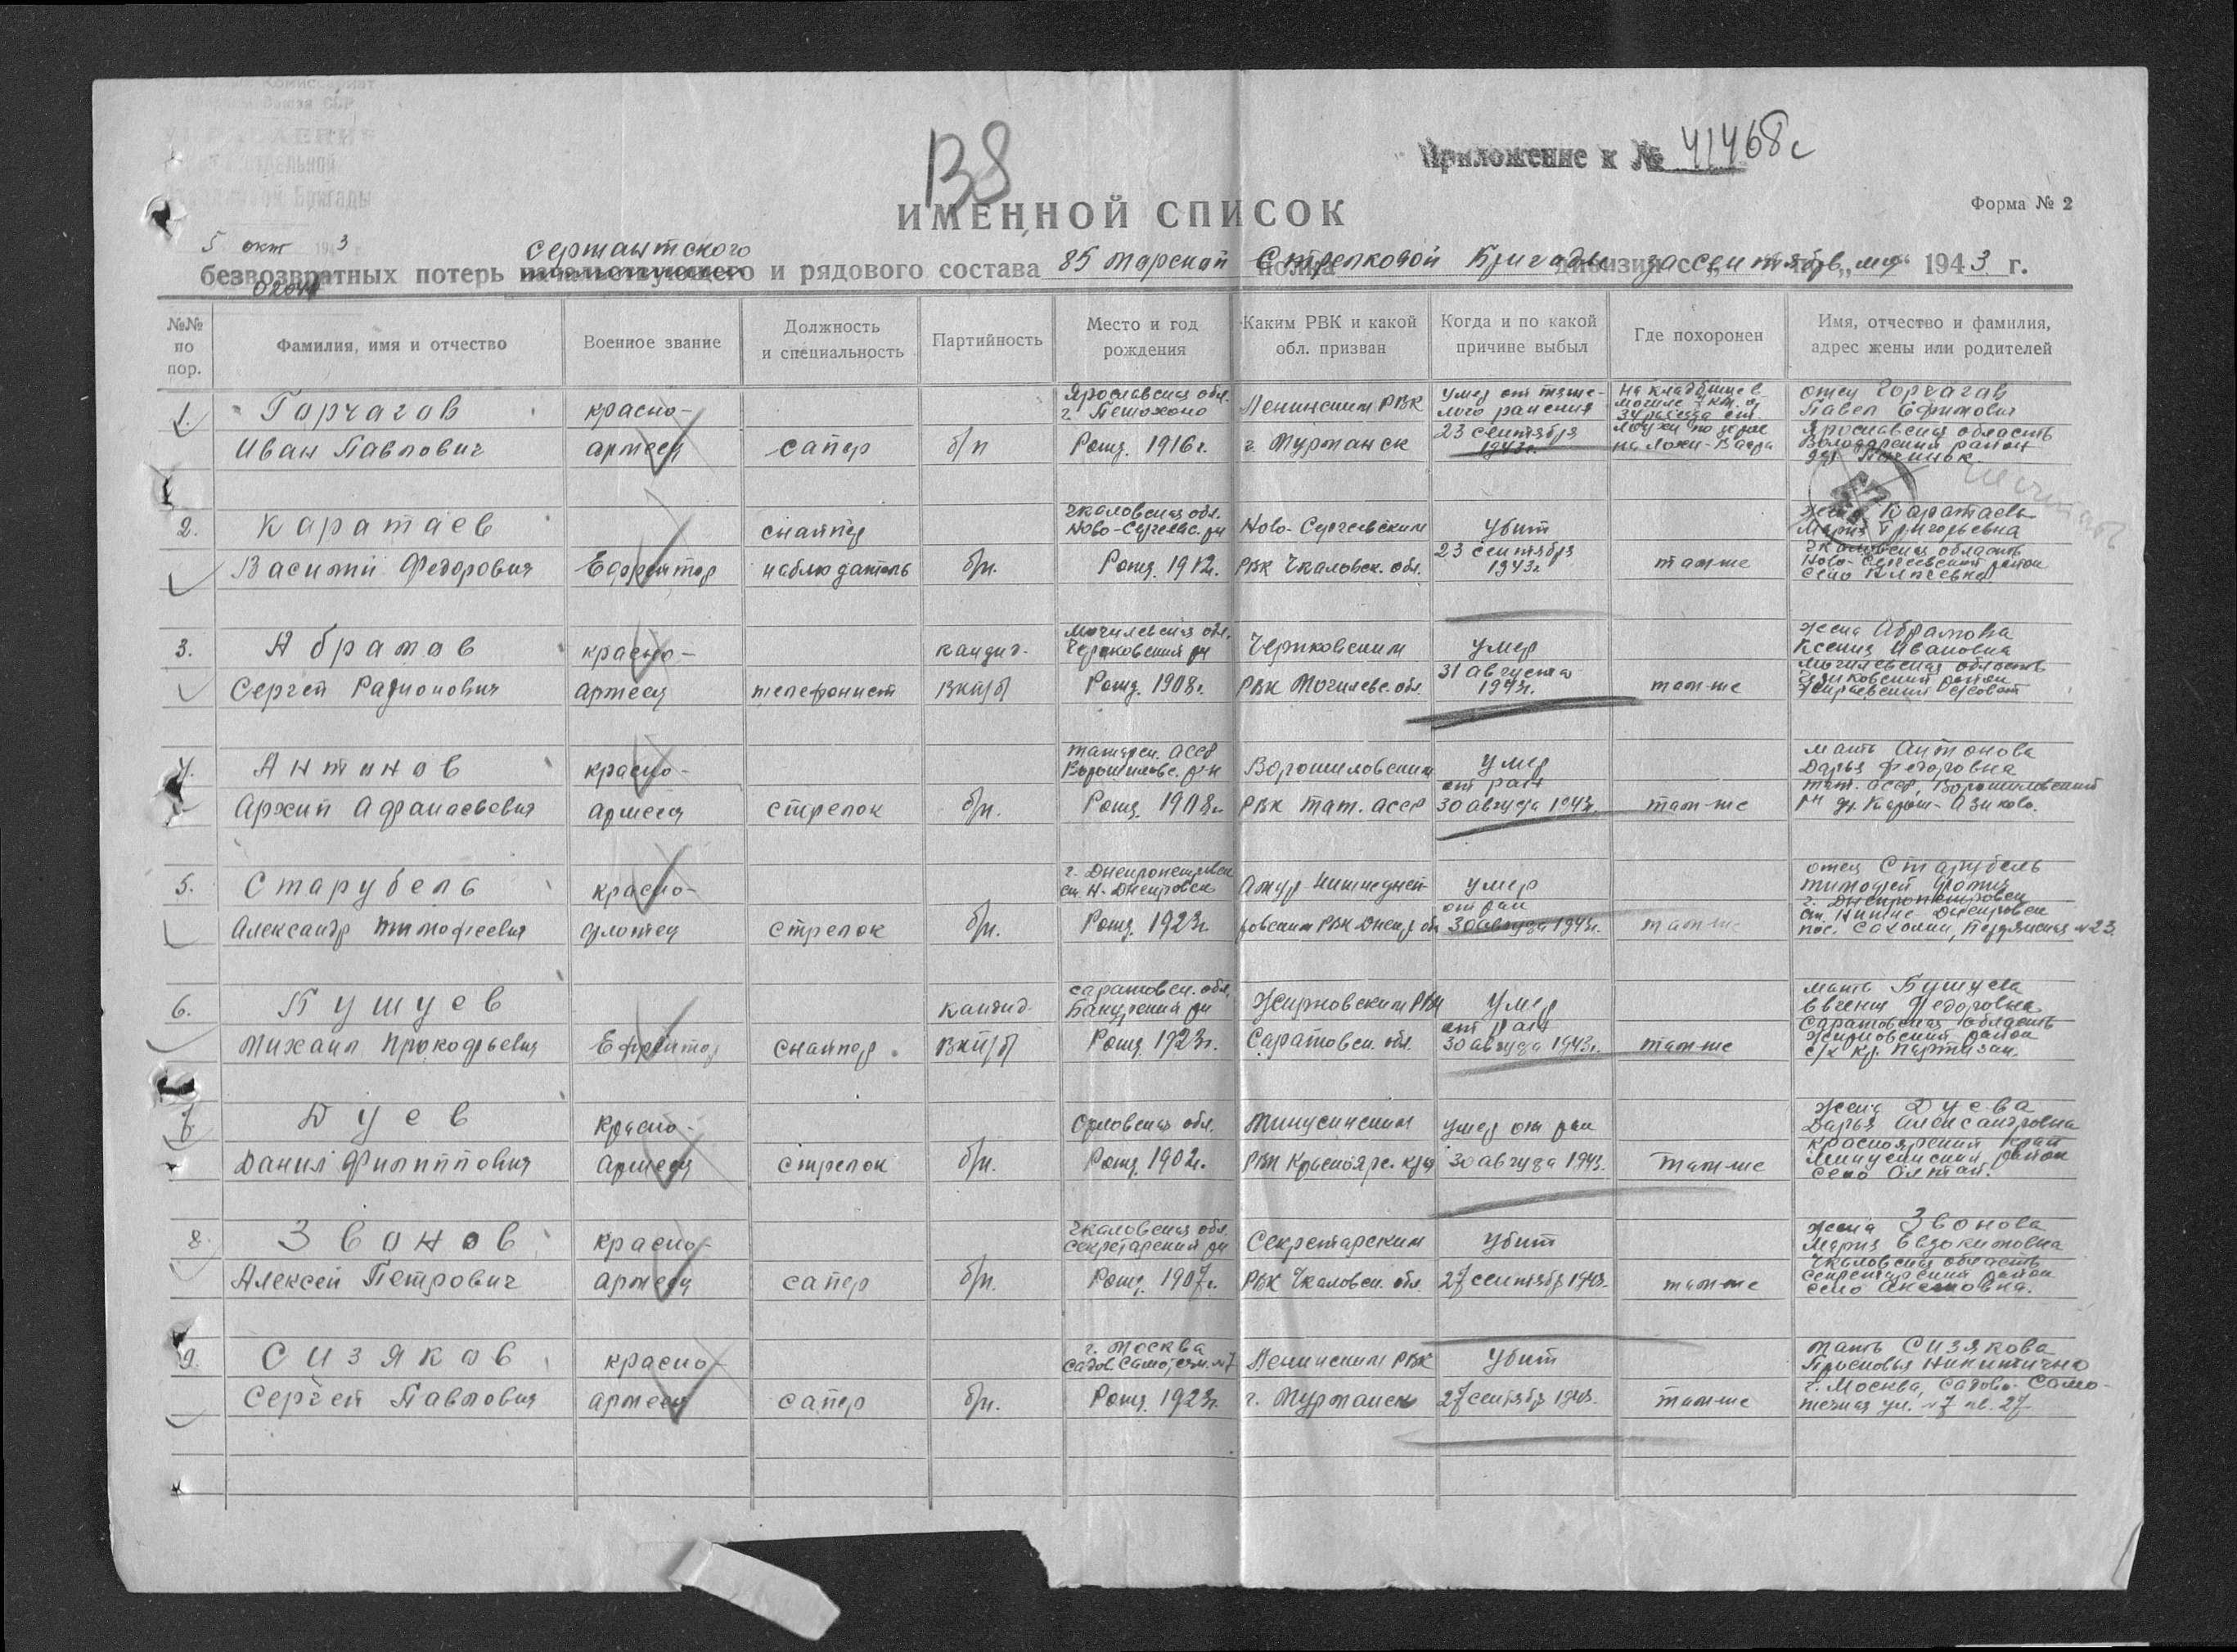 138
Приложение к № 41468с
ИМЕННОЙ СПИСОК
Форма № 2
5 окт 1943
сержантского
безвозвратных потерь начальствующего и рядового состава 85 морской Стрелковой Бригады за сентябрь м-ц 1943 г.
№№ по пор.
Фамилия, имя и отчество
Военное звание
Должность и специальность
Партийность
Место и год рождения
Каким РВК и какой обл. призван
Когда и по какой причине выбыл
Где похоронен
Имя, отчество и фамилия, адрес жены или родителей
1. Горчагов Иван Павлович
красно-армеец
сапер
б/п
Ярославская обл. г. Пошохоно Рожд. 1916г.
Ленинским РВК г. Мурманск
Умер от тяже-лого ранения 23 сентября 1943г.
на кладбище в могиле
отец Горчагов Павел Ефимович Ярославская область Володарский район
2. Каратаев Василий Федорович
Ефрейтор
снайпер наблюдатель
б/п.
Чкаловская обл. Ново-Сергиевс. рн Рожд. 1912.
Ново-Сергиевским РВК Чкаловск. обл.
Убит 23 сентября 1943г.
там-же
жена Каратаева Мария Григорьевна Чкаловская область Ново-Сергеевский район
3. Абрамов Сергей Радионович
красно-армеец
телефонист
кандид. ВКП/б/
Могилевская обл. Чериковский рн Рожд. 1908г.
Чериковским РВК Могилевс. обл.
умер 31 августа 1943г.
там-же
жена Абрамова Ксения Ивановна Могилевская область Чериковский район
4. Антонов Архип Афанасьевич
красно-армеец
стрелок
б/п.
Татарск. АССР Ворошиловс. р-н Рожд. 1908г.
Ворошиловским РВК Тат. АССР
умер от ран 30 августа 1943г.
там-же
мать Антонова Дарья Федоровна Тат. АССР, Ворошиловский рн
5. Старубель Александр Тимофеевич
красно-флотец
стрелок
б/п.
г. Днепропетровск ст. Н-Днепровск Рожд. 1923г.
Амур-Нижнеднеп-ровским РВК Днепр обл
умер от ран 30 августа 1943г.
там-же
отец Старубель Тимофей г. Днепропетровск ст. Нижне-Днепровск
6. Бушуев Михаил Прокофьевич
Ефрейтор
снайпер
кандид. ВКП/б/
Саратовск. обл. Рожд. 1923г.
Жирновским РВК Саратовск. обл.
Умер от ран 30 августа 1943г.
там-же
мать Бушуева Евгения Федоровна Саратовская область Жирновский район с/х Кр. Партизан.
7. Дуев Данил Филиппович
красно-армеец
стрелок
б/п.
Орловская обл. Рожд. 1902г.
Минусинским РВК Красноярс. края
умер от ран 30 августа 1943.
там-же
жена Дуева Дарья Александровна Красноярский край Минусинский район село
8. Звонов Алексей Петрович
красно-армеец
сапер
б/п.
Чкаловская обл. Секретарский рн Рожд. 1907г.
Секретарским РВК Чкаловск. обл.
убит 27 сентябр 1943.
там-же
жена Звонова Мария Евдокимовна Чкаловская область Секретарский район село
9. Сизяков Сергей Павлович
красно-армеец
сапер
б/п.
г. Москва Садов Самотечн. №7 Рожд. 1923г.
Ленинским РВК г. Мурманск
убит 27 сентябр 1943.
там-же
мать Сизякова Просковья Никитична г. Москва, Садово-Само-течная ул. №7 кв. 27